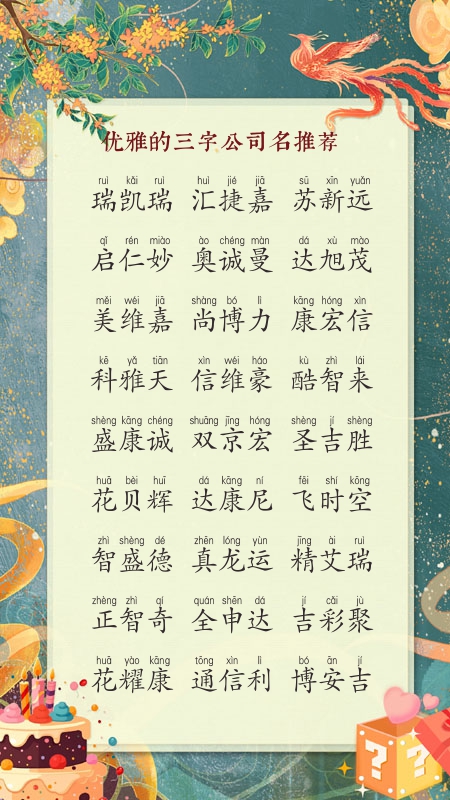 优雅的三字公司名推荐
ruì kǎi ruì huì jié jiā sū xīn yuǎn
瑞凯瑞 汇捷嘉 苏新远
qǐ rén miào ào chéng màn dá xù mào
启仁妙 奥诚曼 达旭茂
měi wéi jiā shàng bó lì kāng hóng xìn
美维嘉 尚博力 康宏信
kē yǎ tiān xìn wéi háo kù zhì lái
科雅天 信维豪 酷智来
shèng kāng chéng shuāng jīng hóng shèng jí shèng
盛康诚 双京宏 圣吉胜
huā bèi huī dá kāng ní fēi shí kōng
花贝辉 达康尼 飞时空
zhì shèng dé zhēn lóng yùn jīng ài ruì
智盛德 真龙运 精艾瑞
zhèng zhì qí quán shēn dá jí cǎi jù
正智奇 全申达 吉彩聚
huā yào kāng tōng xìn lì bó ān jí
花耀康 通信利 博安吉
? ?